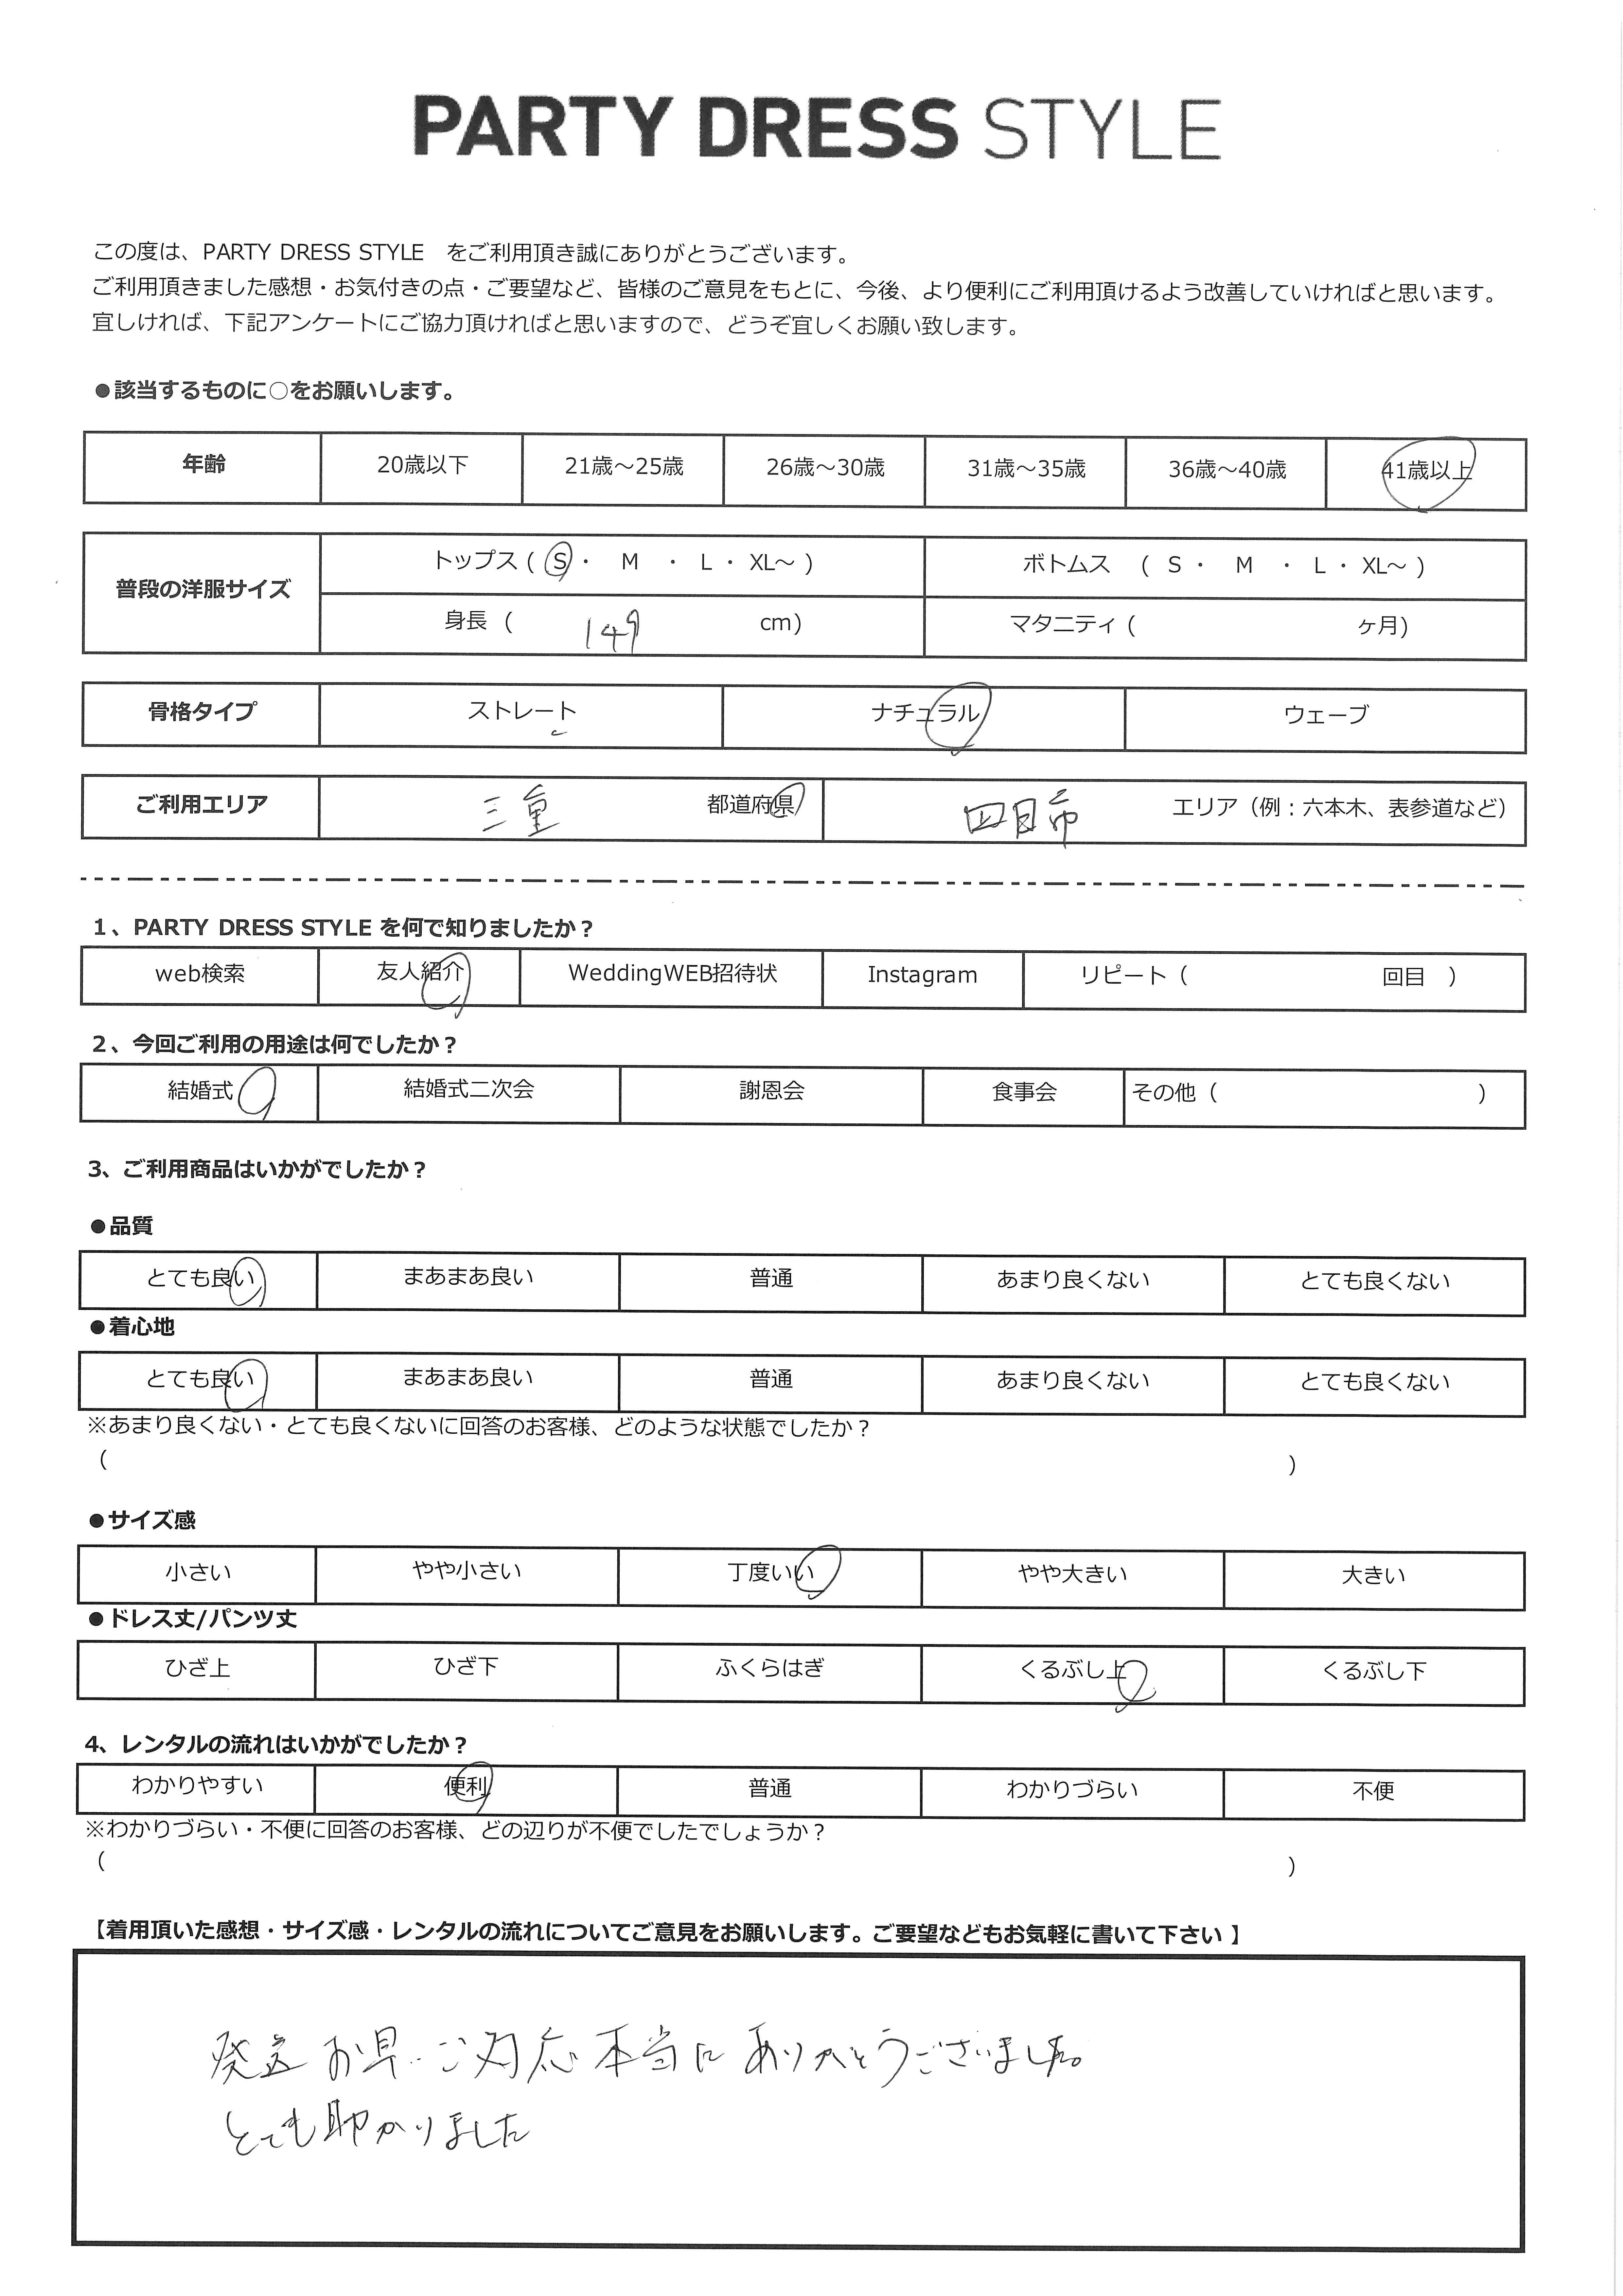 PARTY DRESS STYLE
この度は、PARTY DRESS STYLE をご利用頂き誠にありがとうございます。
ご利用頂きました感想・お気付きの点・ご要望など、皆様のご意見をもとに、今後、より便利にご利用頂けるよう改善していければと思います。
宜しければ、下記アンケートにご協力頂ければと思いますので、どうぞ宜しくお願い致します。
●該当するものに○をお願いします。
年齢 20歳以下 21歳～25歳 26歳～30歳 31歳～35歳 36歳～40歳 41歳以上
普段の洋服サイズ
トップス ( S ・ M ・ L ・ XL～ ) ボトムス ( S ・ M ・ L ・ XL～ )
身長 ( 149 cm) マタニティ ( ヶ月)
骨格タイプ ストレート ナチュラル ウェーブ
ご利用エリア 三重 都道府県 四日市 エリア（例：六本木、表参道など）
1、PARTY DRESS STYLE を何で知りましたか？
web検索 友人紹介 WeddingWEB招待状 Instagram リピート（ 回目 ）
2、今回ご利用の用途は何でしたか？
結婚式 結婚式二次会 謝恩会 食事会 その他（ ）
3、ご利用商品はいかがでしたか？
●品質
とても良い まあまあ良い 普通 あまり良くない とても良くない
●着心地
とても良い まあまあ良い 普通 あまり良くない とても良くない
※あまり良くない・とても良くないに回答のお客様、どのような状態でしたか？
（ ）
●サイズ感
小さい やや小さい 丁度いい やや大きい 大きい
●ドレス丈/パンツ丈
ひざ上 ひざ下 ふくらはぎ くるぶし上 くるぶし下
4、レンタルの流れはいかがでしたか？
わかりやすい 便利 普通 わかりづらい 不便
※わかりづらい・不便に回答のお客様、どの辺りが不便でしたでしょうか？
（ ）
【着用頂いた感想・サイズ感・レンタルの流れについてご意見をお願いします。ご要望などもお気軽に書いて下さい 】
発送 お早 ご対応 本当に ありがとうございました。
とても助かりました